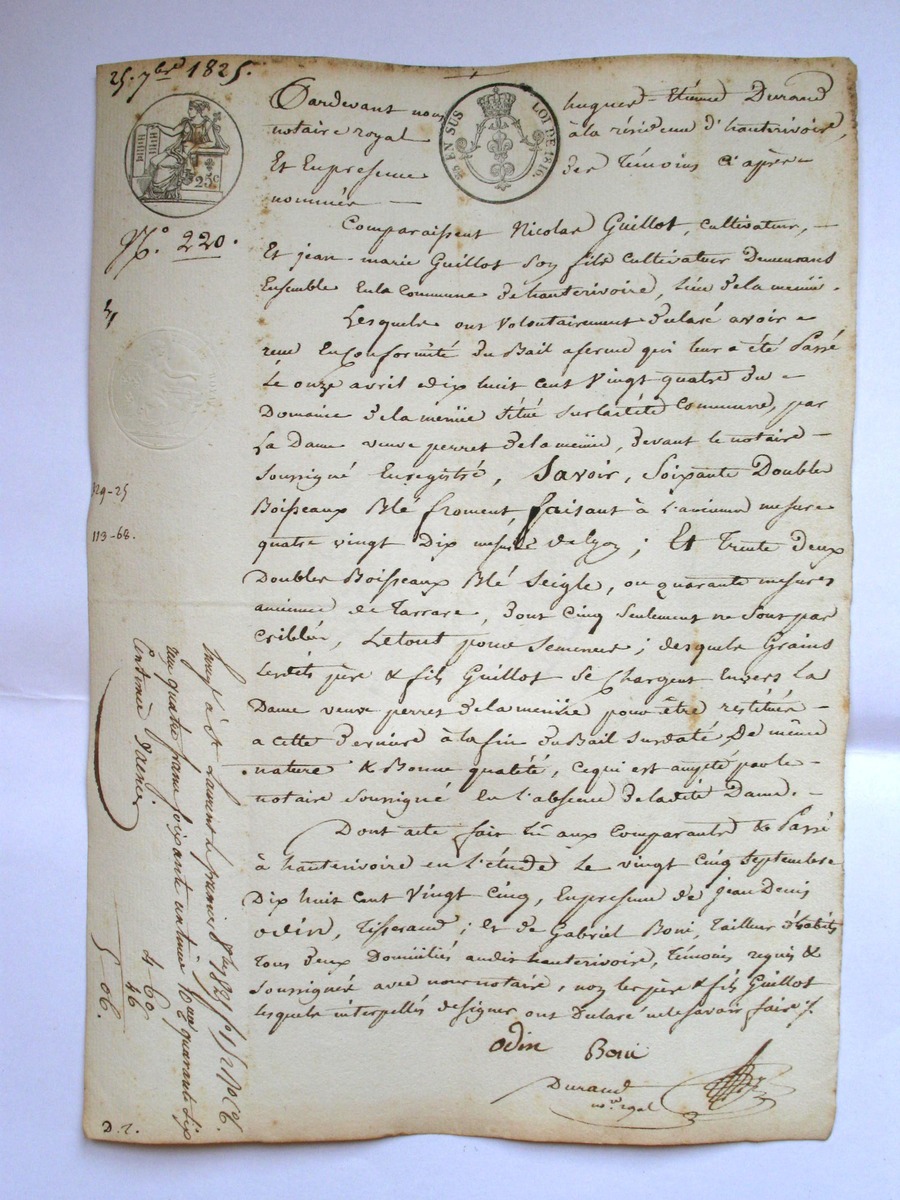 25. 7bre 1825.
Pardevant nous hugues-Etiénne Durand
notaire royal à la résidence d'hauterivoire,
Et En presence des Témoins ci après
nommés —
EN SUS LOI DE 1816.
25c
N.° 220.
Comparaissent Nicolas Guillot, cultivateur, —
Et jean-marie Guillot son fils cultivateur Demeurans
Ensemble En la Commune de hauterivoire, Lieu de la
Lesquels ont volontairement declaré avoir
recu En Conformité du Bail a ferme qui leur a été Passé
Le onze avril dix huit cent vingt quatre du
Domaine de la situé sur la dité Commune, par
La Dame veuve perret de la devant le notaire —
Soussigné Enregistré, Savoir, Soixante Double
Boisseaux Blé froment, faisant à L'ancienne mesure
quatre vingt Dix mesures de Lyon ; Et Trente Deux
Doubles Boisseaux Blé Seigle, ou quarante mesures
ancienne de Tarrare, dont Cinq seulement ne sont pas
criblés, Le tout pour semence ; desquels Grains
Lesdits père & fils Guillot se chargent Envers La
Dame veuve perret de la pour être restitués —
a cette derniere à la fin du Bail susdaté, De même
nature & Bonne qualité, ce qui est accepté par le —
notaire soussigné En L'absence de la dite Dame. —
Dont acte fait Lu aux Comparants & Passé
à hauterivoire en L'étude Le vingt cinq Septembre
Dix huit cent Vingt Cinq, En presence de jean Denis
odin, Tisserand ; et de Gabriel Boni, Tailleur d'habits
Tous deux Domiciliés audit hauterivoire, Témoins requis &
soussignés avec nous notaire, non les père & fils Guillot
lesquels interpellés de signer, ont Declaré ne le savoir faire ./.
odin Boni
Durand
nre royal
129-25
113-68.
Enregé à St Laurent le premier 8bre 1825
quatre francs soixante centimes 10me quarante six
centimes
4 60
46
5 06.
D. 2.